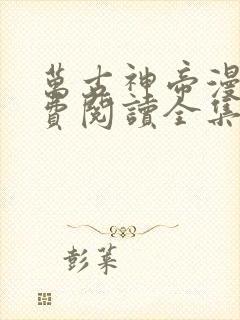 萬古神帝漫
費閱讀全集
彭萊